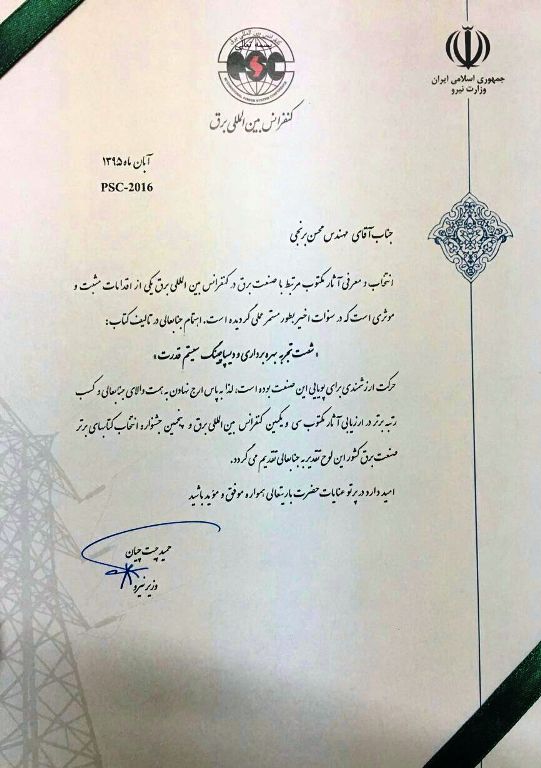 جمهوری اسلامی ایران
وزارت نیرو
بسمه تعالی
کنفرانس بین المللی برق
PSC
INTERNATIONAL POWER SYSTEM CONFERENCE
کنفرانس بین المللی برق
آبان ماه ۱۳۹۵
PSC-2016
جناب آقای مهندس محسن برنجی
انتخاب و معرفی آثار مکتوب مرتبط با صنعت برق در کنفرانس بین المللی برق یکی از اقدامات مثبت و
موثری است که در سنوات اخیر بطور مستمر عملی گردیده است. اهتمام جنابعالی در تالیف کتاب:
«شصت تجربه بهره برداری و دیسپاچینگ سیستم قدرت»
حرکت ارزشمندی برای پویایی این صنعت بوده است، لذا به پاس ارج نهادن به همت والای جنابعالی و کسب
رتبه برتر در ارزیابی آثار مکتوب سی و یکمین کنفرانس بین المللی برق و پنجمین جشنواره انتخاب کتابهای برتر
صنعت برق کشور این لوح تقدیر به جنابعالی تقدیم می گردد.
امید دارد در پرتو عنایات حضرت باریتعالی همواره موفق و مؤید باشید
حمید چیت چیان
وزیر نیرو